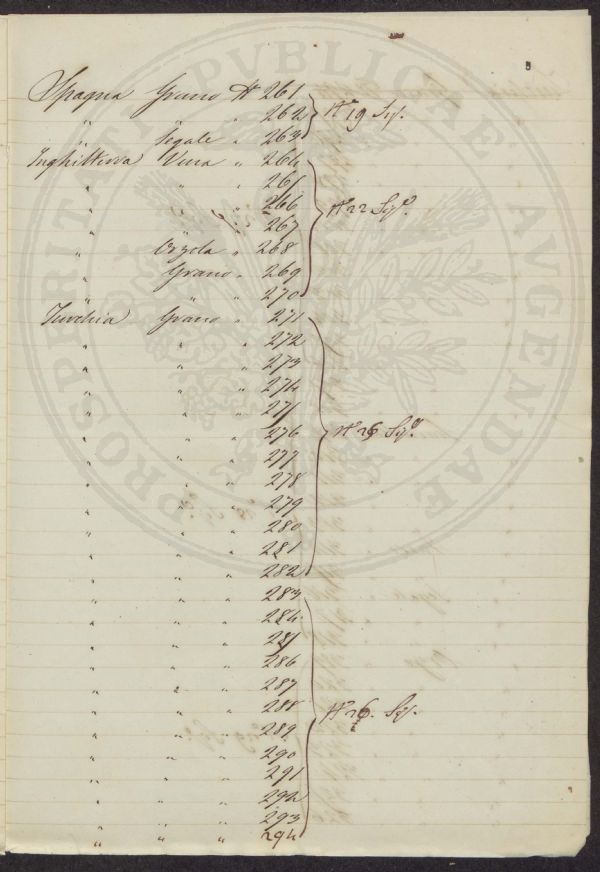 PROSPERITATI PVBLICAE AVGENDAE
3
Spagna Grano N 261
" " " 262 } N 19 Sig.
" Segale " 263
Inghilterra Vena " 264
" " " 265
" " " 266 } N 22 Sig.
" " " 267
" Orzola " 268
" Grano " 269
" " " 270
Turchia Grano " 271
" " " 272
" " " 273
" " " 274
" " " 275
" " " 276 } N 26 Sig.
" " " 277
" " " 278
" " " 279
" " " 280
" " " 281
" " " 282
" " " 283
" " " 284
" " " 285
" " " 286
" " " 287
" " " 288 } N 26. Sig.
" " " 289
" " " 290
" " " 291
" " " 292
" " " 293
" " " 294